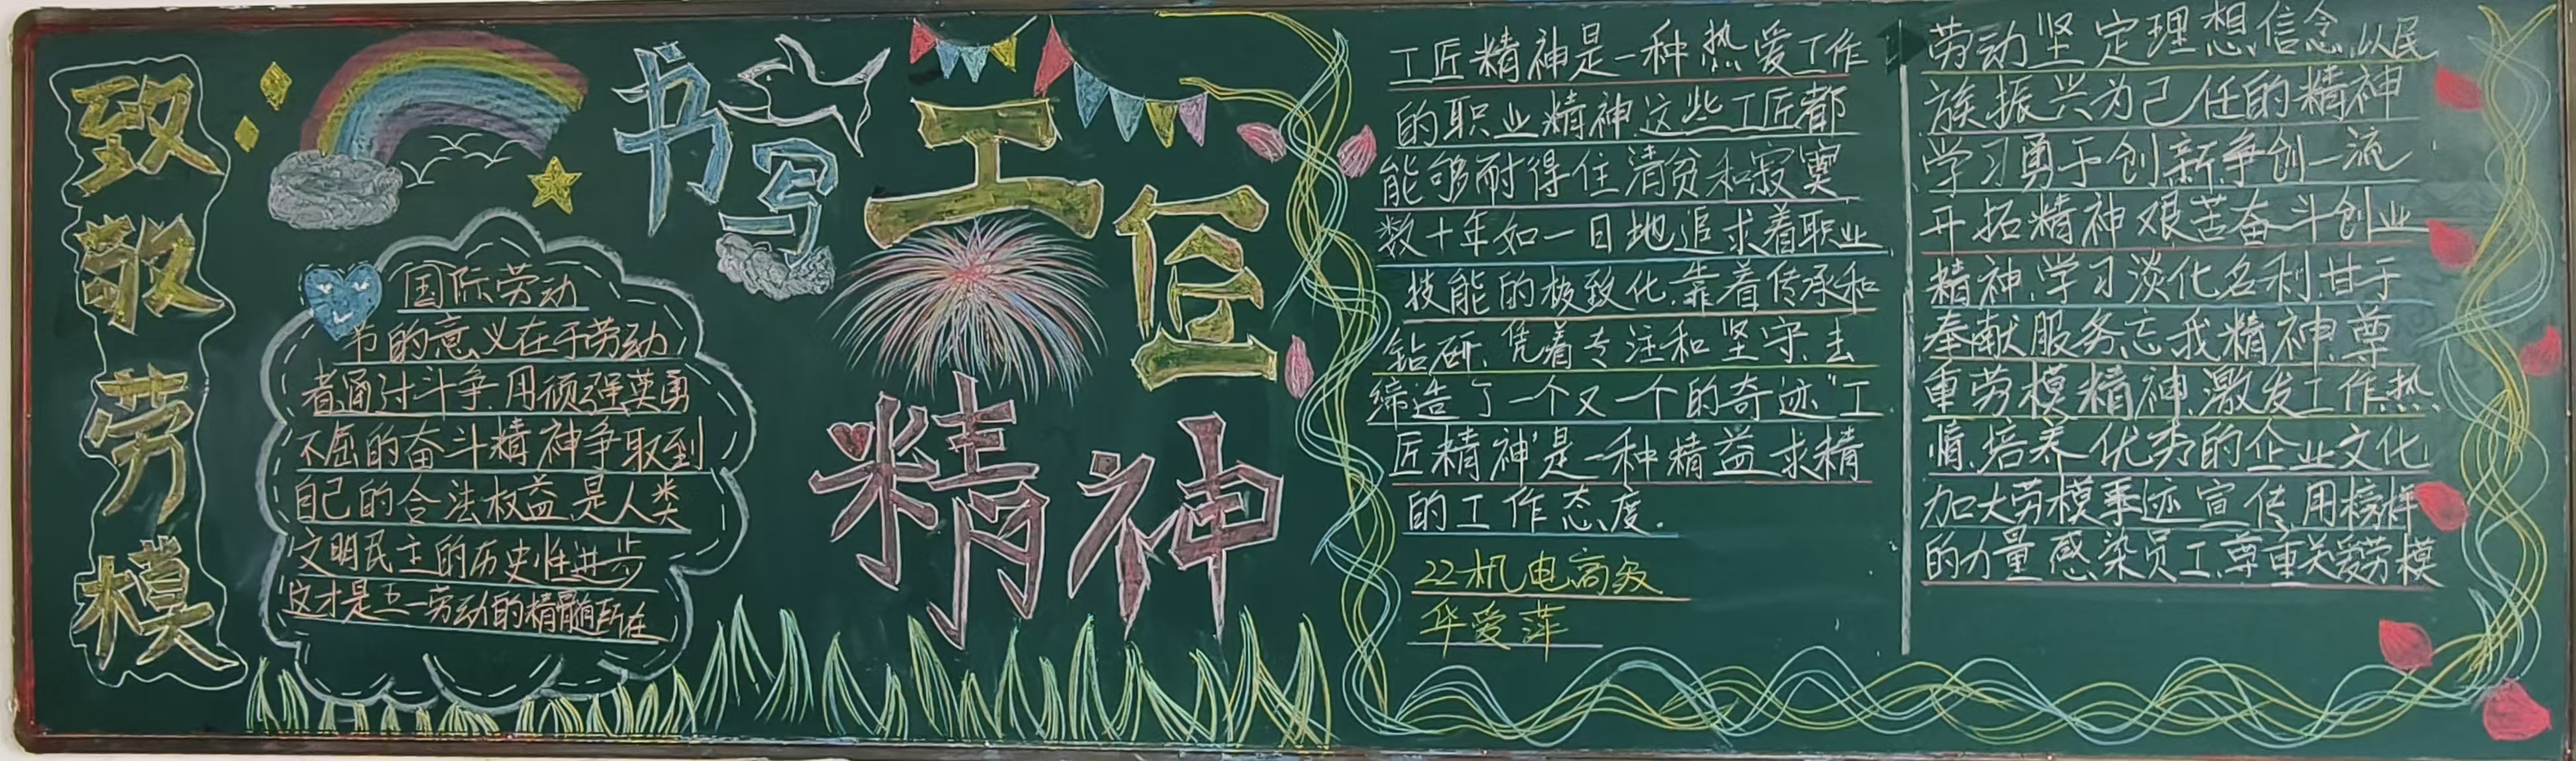 致敬劳模
书写工匠
精神
国际劳动
节的意义在于劳动
者通过斗争,用顽强英勇
不屈的奋斗精神争取到
自己的合法权益,是人类
文明民主的历史性进步
这才是五一劳动的精髓所在
工匠精神是一种热爱工作
的职业精神.这些工匠都
能够耐得住清贫和寂寞
数十年如一日地追求着职业
技能的极致化.靠着传承和
钻研、凭着专注和坚守,去
缔造了一个又一个的奇迹"工
匠精神"是一种精益求精
的工作态度.
22机电高级
华爱萍
劳动坚定理想,信念,以民
族振兴为己任的精神
学习勇于创新争创一流
开拓精神艰苦奋斗创业
精神,学习淡化名利,甘于
奉献服务忘我精神,尊
重劳模精神,激发工作热
情,培养优秀的企业文化
加大劳模事迹宣传,用榜样
的力量感染员工,尊重关爱劳模